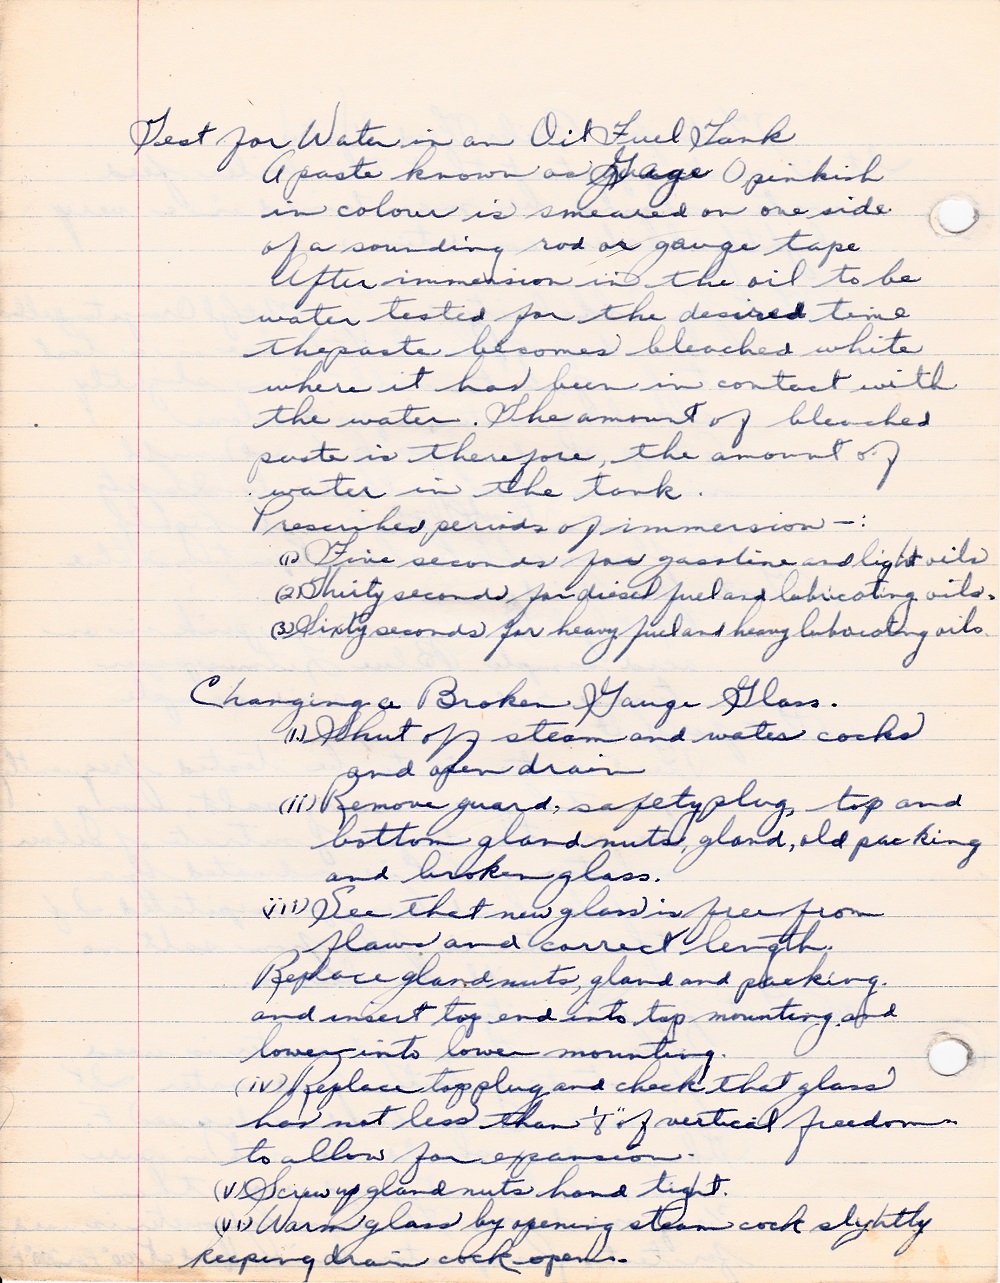 Test for Water in an Oil Fuel Tank
A paste known as Gage O pinkish
in colour is smeared on one side
of a sounding rod or gauge tape
After immersion in the oil to be
water tested for the desired time
the paste becomes bleached white
where it has been in contact with
the water. The amount of bleached
paste is therefore, the amount of
water in the tank.
Prescribed periods of immersion -:
(1) Five seconds for gasoline and light oils
(2) Thirty seconds for diesel fuel and lubricating oils.
(3) Sixty seconds for heavy fuel and heavy lubricating oils.
Changing a Broken Gauge Glass.
(i) Shut off steam and water cocks
and open drain
(ii) Remove guard, safety plug, top and
bottom gland nuts, gland, old packing
and broken glass.
(iii) See that new glass is free from
flaws and correct length.
Replace gland nuts, gland and packing.
and insert top end into top mounting and
lower into lower mounting.
(iv) Replace top plug and check that glass
has not less than 1/8" of vertical freedom
to allow for expansion.
(v) Screw up gland nuts hand tight.
(vi) Warm glass by opening steam cock slightly
keeping drain cock open.